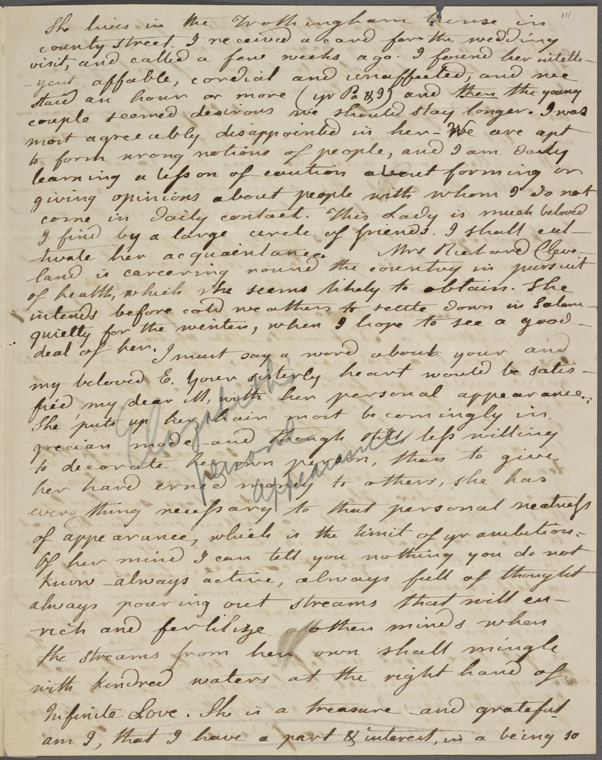 She lives in the Frothingham house in
county street. I received a card for the wedding
visit, and called a few weeks ago. I found her intelli-
-gent affable, cordial and unaffected, and we
staid an hour or more (yr Pa & I) and then the young
couple seemed desirous we should stay longer. I was
most agreeably disappointed in her - We are apt
to form wrong notions of people, and I am daily
learning a lesson of caution about forming or
giving opinions about people with whom I do not
come in daily contact. This Lady is much beloved
I find by a large circle of friends. I shall cul-
tivate her acquaintance. Mrs Richard Cleve-
land is careering round the country in pursuit
of health, which she seems likely to obtain. She
intends before cold weather to settle down in Salem
quietly for the winter, when I hope to see a good
deal of her. I must say a word about your and
my beloved E. Your sisterly heart would be satis-
fied my dear M, with her personal appearance.
She puts up her hair most becomingly in
grecian mode and though still less willing
to decorate her own person, than to give
her hard erned money to others, she has
every thing necessary to that personal neatness
of appearance, which is the limit of yr ambition.
Of her mind I can tell you nothing you do not
know - always active, always full of thought
always pouring out streams that will en-
rich and fertilize other minds when
the streams from her own shall mingle
with kindred waters at the right hand of
Infinite Love. She is a treasure - and grateful
am I, that I have a part & interest, in a being so
Elizabeth's
personal
appearance